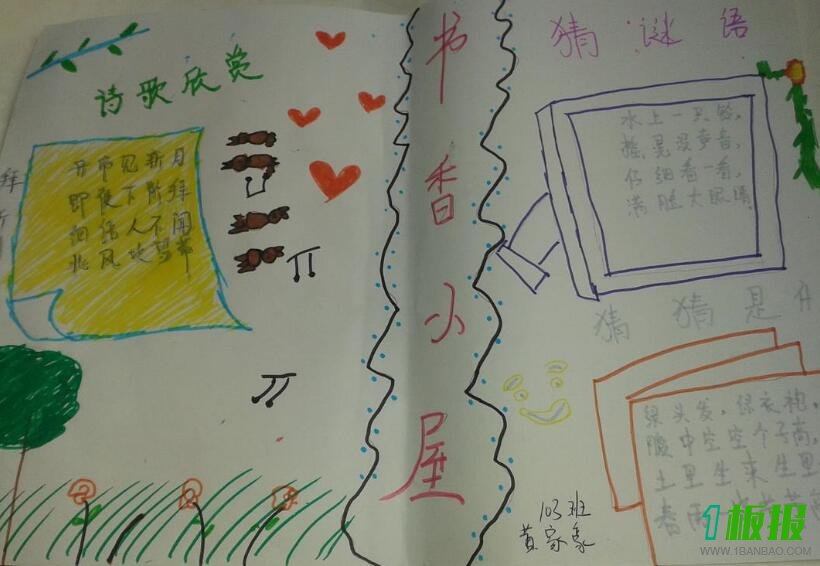 诗歌欣赏
开帘见新月
即便下阶拜
细语人不闻
北风吹裙带
拜
书香小屋
猜谜语
水上一只铃,
摇晃没声音,
仔细看一看,
满脸大眼睛
猜猜是什
绿头发,绿衣袍,
腹中空空个子高,
土里生来生里
春雨
103班
黄家豪
1板报
WWW.1BANBAO.COM